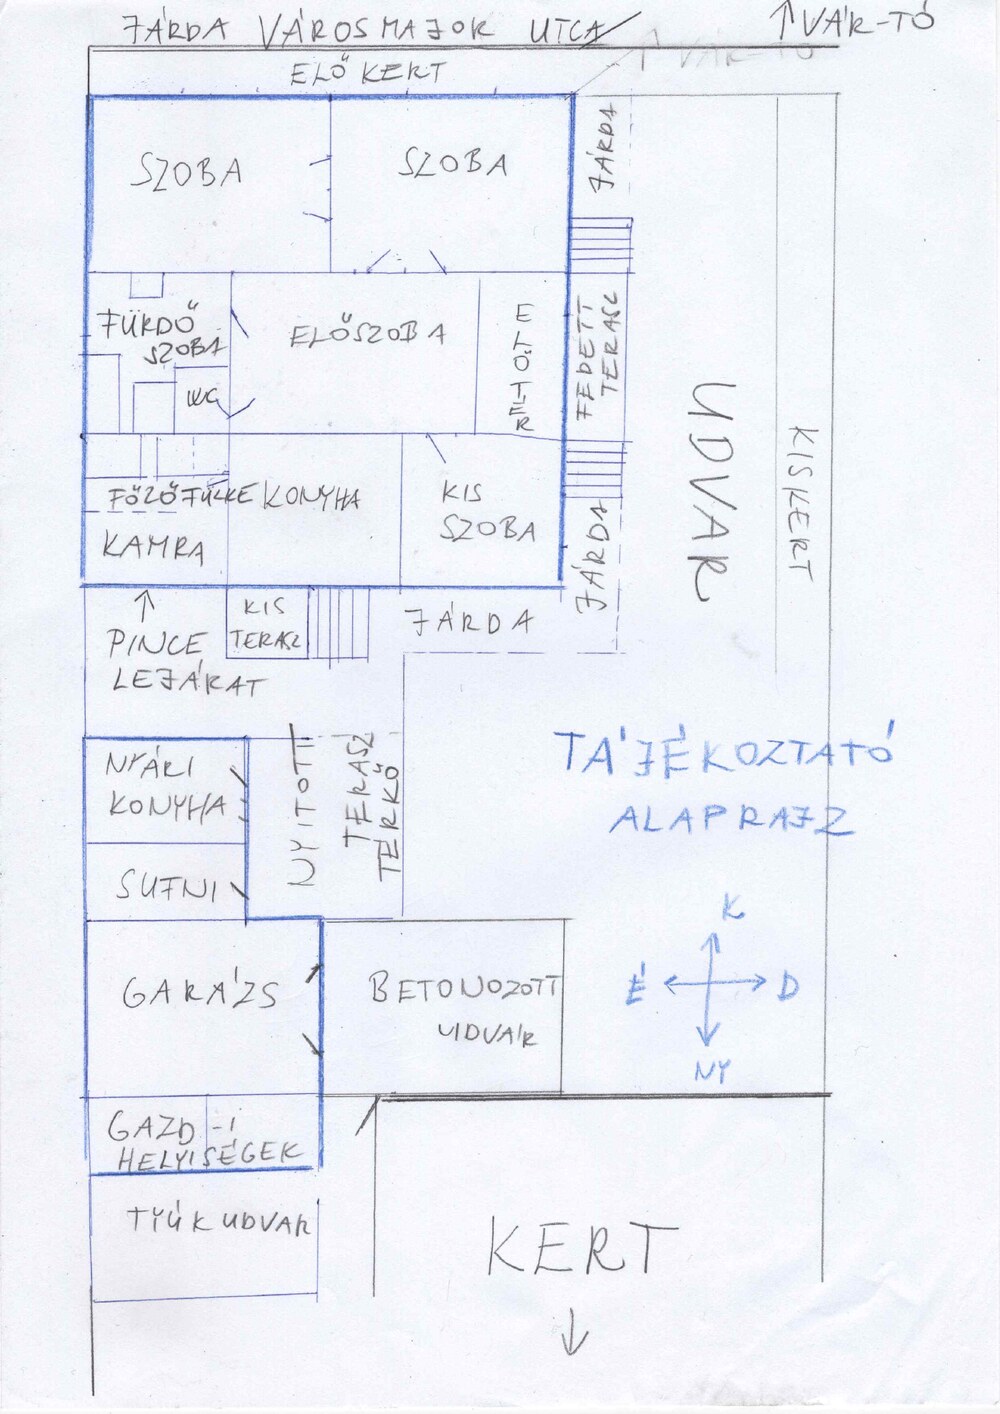 JÁRDA VÁROSMAJOR UTCA
↑ VÁR-TÓ
VÁR-TÓ
ELŐKERT
SZOBA
SZOBA
JÁRDA
FÜRDŐ
SZOBA
WC
ELŐSZOBA
ELŐTÉR
FEDETT
TERASZ
UDVAR
KISKERT
FŐZŐFÜLKE
KONYHA
KIS
SZOBA
KAMRA
JÁRDA
PINCE
LEJÁRAT
KIS
TERASZ
JÁRDA
NYÁRI
KONYHA
NYITOTT
TERASZ
TÉRKŐ
TÁJÉKOZTATÓ
ALAPRAJZ
SUFNI
K
É
D
NY
GARÁZS
BETONOZOTT
UDVAR
GAZD-I
HELYISÉGEK
TYÚKUDVAR
KERT